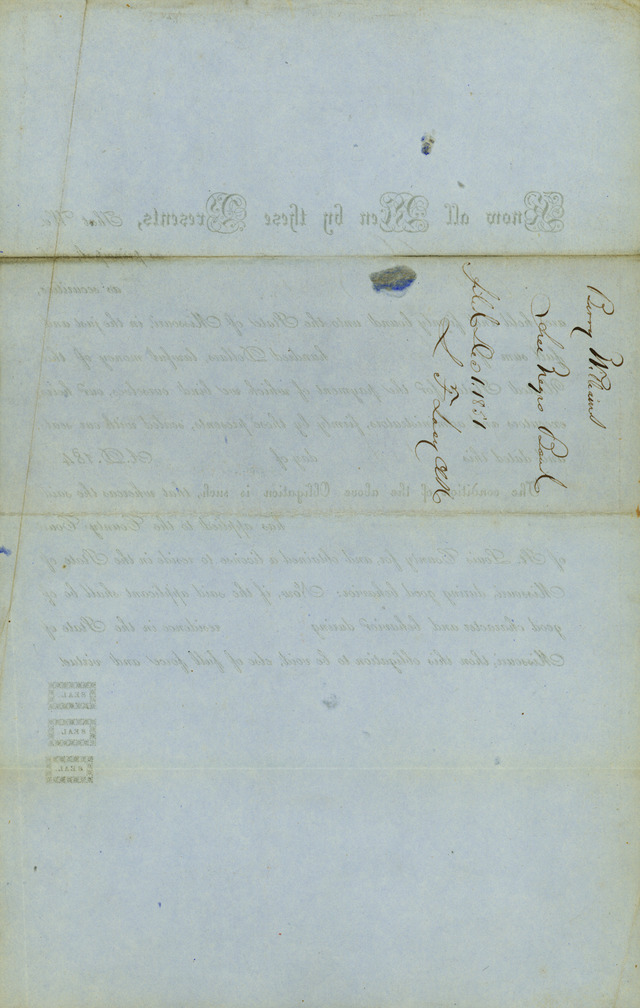 Berry Williams
Free Negro Bond
Filed Dec 1. 1851
L F Lacy Clk
Know all Men by these Presents, That We
as securities,
are held and firmly bound unto the State of Missouri, in the just and
full sum of hundred Dollars, lawful money of the
United States, for the payment of which we bind ourselves, our heirs,
executors and administrators, firmly by these presents, sealed with our
seals dated this day of A.D. 184
The condition of the above Obligation is such, that whereas the said
has applied to the County Court
of St. Louis County for and obtained a license to reside in the State of
Missouri, during good behavior: Now, if the said applicant shall be of
good character and behavior during residence in the State of
Missouri, then this obligation to be void, else of full force and virtue.
SEAL
SEAL
SEAL